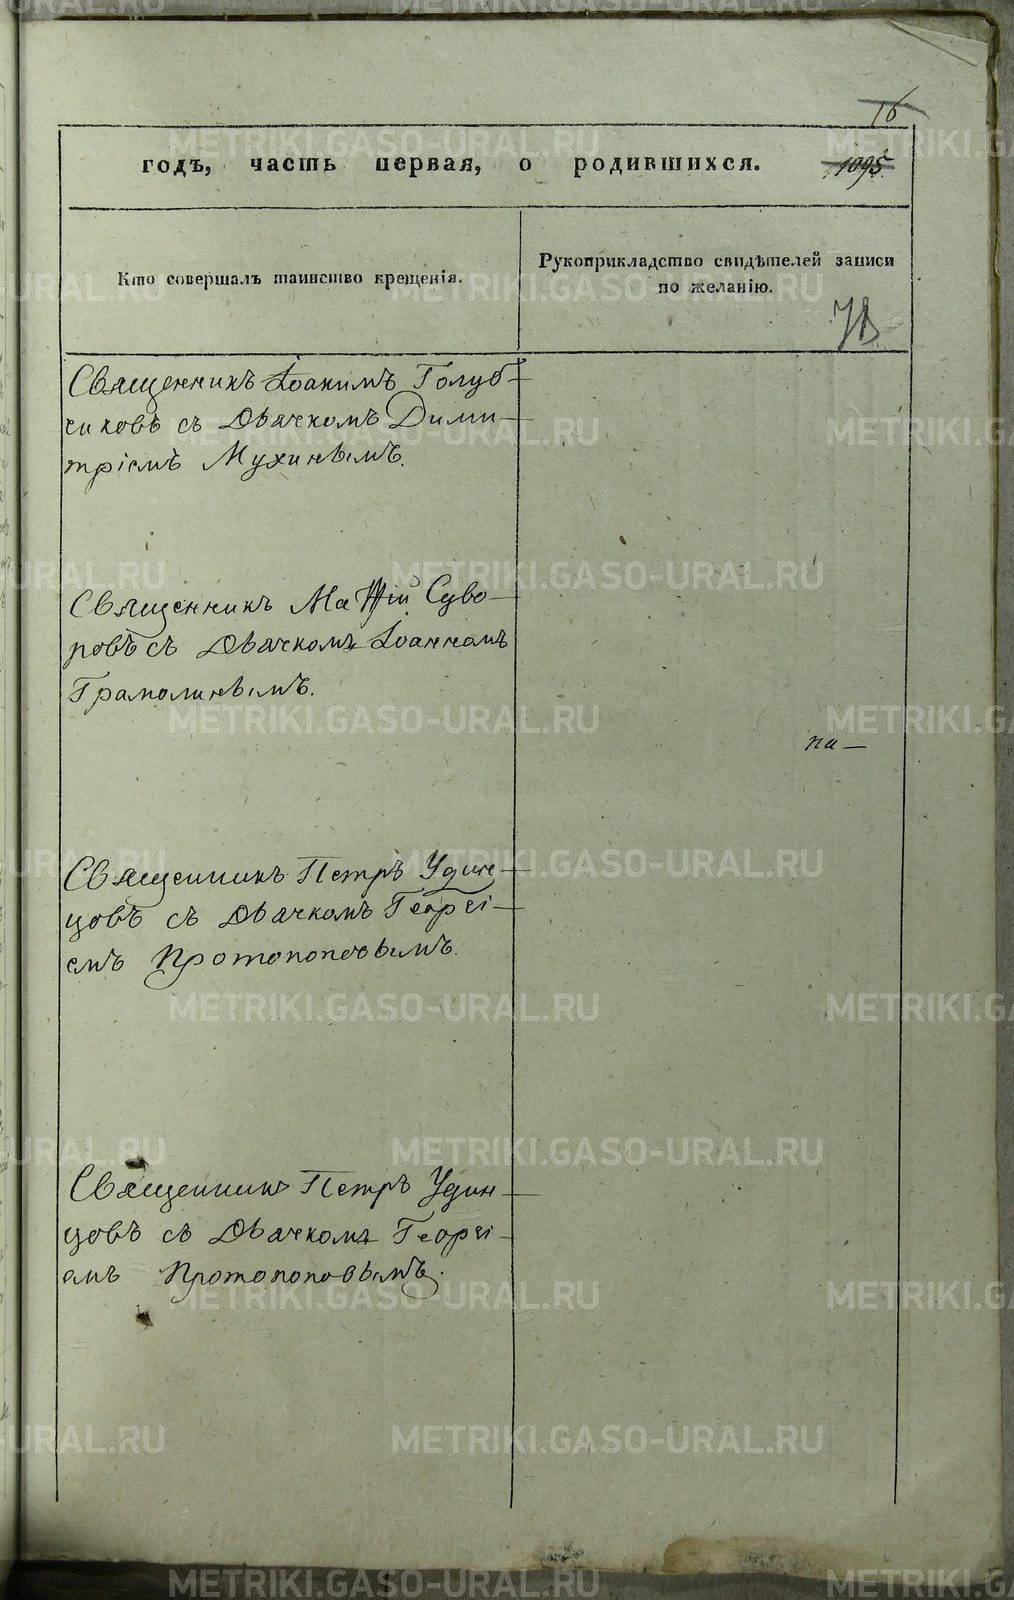 16
годъ, часть первая, о родившихся. 1095
Кто совершалъ таинство крещенія.
Рукоприкладство свидѣтелей записи
по желанію.
Священникъ Іоакимъ Голуб-
чиковъ съ Дьячкомъ Дими-
тріемъ Мухинымъ.
Священникъ Матѳій Суво-
ровъ съ Дьячкомъ Іоанномъ
Грамолинымъ.
па-
Священникъ Петръ Удин-
цовъ съ Дьячкомъ Георгі-
емъ Протопоповымъ.
Священникъ Петръ Удин-
цовъ съ Дьячкомъ Георгі-
емъ Протопоповымъ.
METRIKI.GASO-URAL.RU